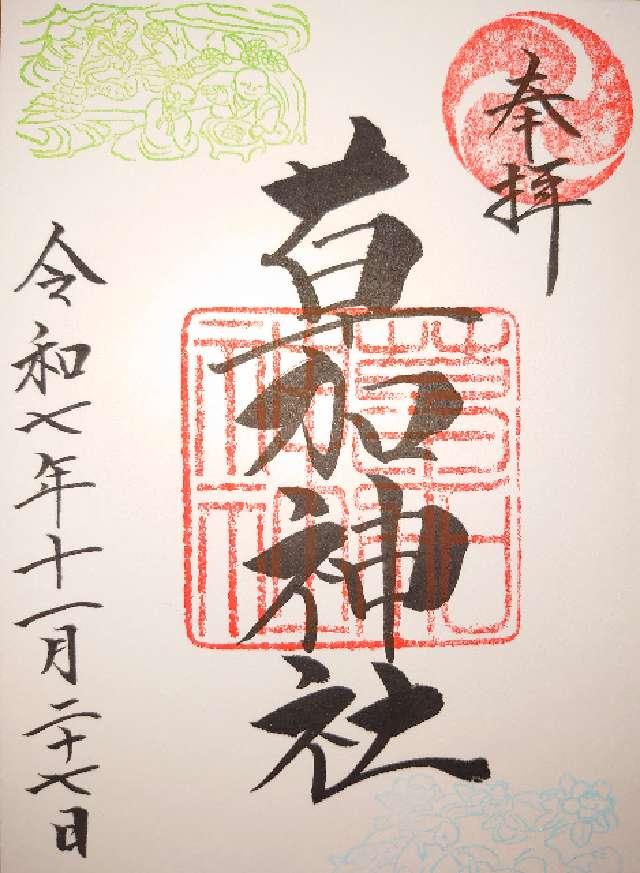 奉拝
草加神社
令和七年十一月二十七日